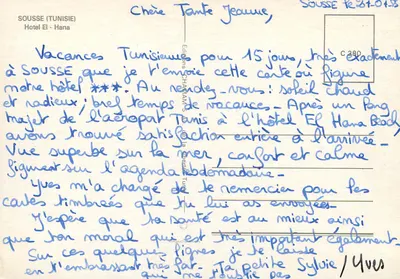 SOUSSE (TUNISIE)
Hotel El - Hana
Chère Tante Jeanne,
SOUSSE le
Vacances Tunisiennes pour 15 jours, très exactement
à SOUSSE que je t'envoie cette carte où figure
notre hôtel ***. Au rendez-vous : soleil chaud
et radieux ; bref temps de vacances - Après un long
trajet de l'aéroport Tunis à l'hôtel El Hana Beach,
avons trouvé satisfaction entière à l'arrivée -
Vue superbe sur la mer, confort et calme
figurent sur l'agenda hebdomadaire -
Yves m'a chargé de te remercier pour les
cartes timbrées que tu lui as envoyées -
J'espère que ta santé est au mieux ainsi
que ton moral qui est très important également -
Sur ces quelques lignes je te laisse
en t'embrassant très fort. Ta petite Sylvie / Yves
qui ne t'oublie pas